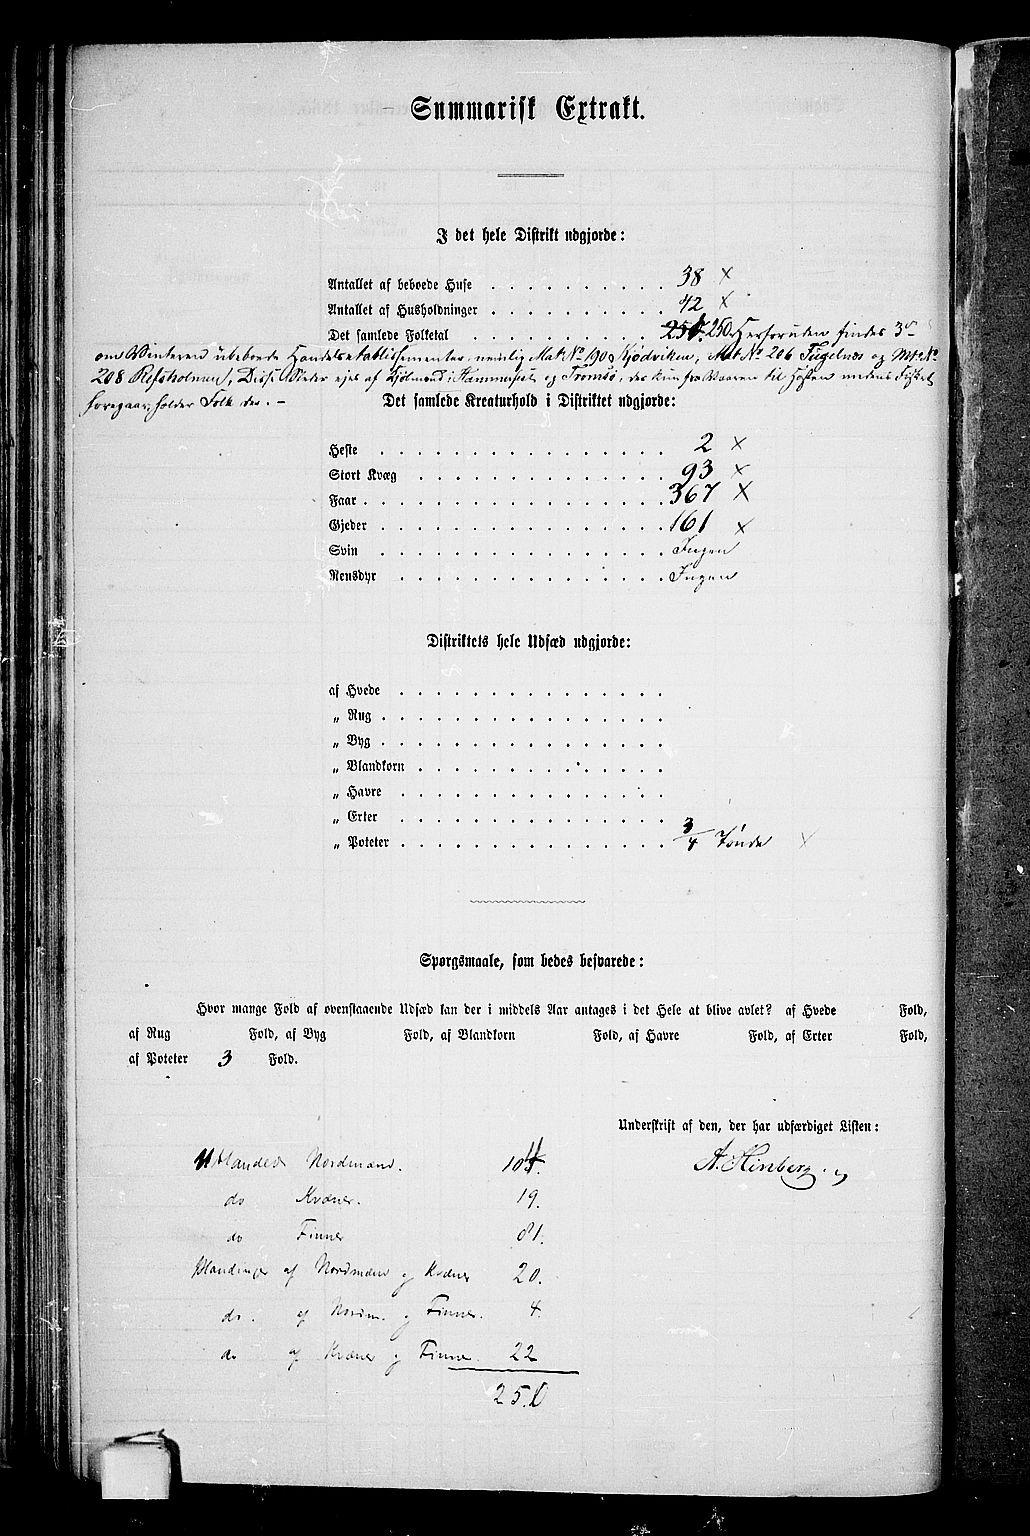 Summarisk Extrakt.
I det hele Distrikt udgjorde:
Antallet af beboede Huse . . . . . . . . . . 38 ×
Antallet af Husholdninger . . . . . . . . . . 42 ×
Det samlede Folketal . . . . . . . . . . 251. 250. Herforuden findes 3de
om Vinteren ubeboede Handelsetablissementer, nemlig Mat. No 190 Kjødviken, Mat. No 206 Fuglenæs og Mt. No
208 Refsholmen, Disse Steder ejes af Kjøbmænd i Hammerfest og Tromsø, der kun fra Vaaren til Høsten medens Fiskeri
foregaar, holder Folk der. –
Det samlede Kreaturhold i Distriktet udgjorde:
Heste . . . . . . . . . . 2 ×
Stort Kvæg . . . . . . . . . . 93 ×
Faar . . . . . . . . . . 367 ×
Gjeder . . . . . . . . . . 161 ×
Svin . . . . . . . . . . Ingen
Rensdyr . . . . . . . . . . Ingen
Distriktets hele Udsæd udgjorde:
af Hvede . . . . . . . . . .
„ Rug . . . . . . . . . .
„ Byg . . . . . . . . . .
„ Blandkorn . . . . . . . . . .
„ Havre . . . . . . . . . .
„ Erter . . . . . . . . . .
„ Poteter . . . . . . . . . . 3/4 Tønde ×
Spørgsmaale, som bedes besvarede:
Hvor mange Fold af ovenstaaende Udsæd kan der i middels Aar antages i det Hele at blive avlet? af Hvede Fold,
af Rug Fold, af Byg Fold, af Blandkorn Fold, af Havre Fold, af Erter Fold,
af Poteter 3 Fold.
Underskrift af den, der har udfærdiget Listen:
A. Hinberg.
Ublandede Nordmænd. 104.
do Kvæner. 19.
do Finner 81.
Blandinger af Nordmænd og Kvæner 20.
do. af Nordm. og Finner. 4.
do af Kvæner og Finner. 22
250